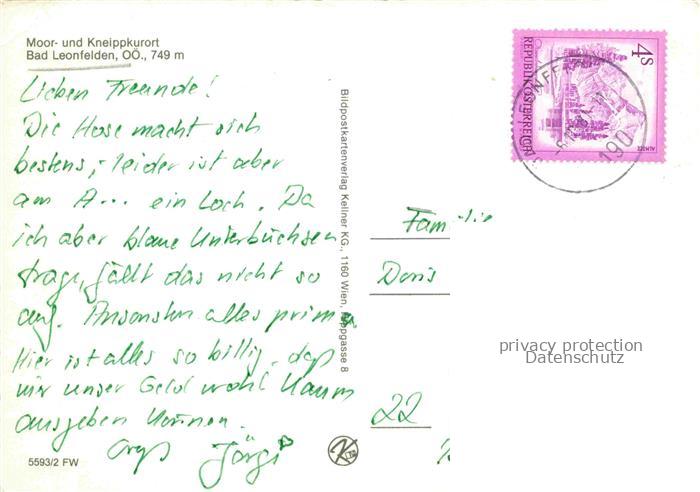 Moor- und Kneippkurort
Bad Leonfelden, OÖ., 749 m
Lieben Freunde!
Die Hose macht sich
bestens, leider ist aber
am A... ein Loch. Da
ich aber blaue Unterbuchsen
trage, fällt das nicht so
auf. Ansonsten alles prima.
Hier ist alles so billig, daß
wir unser Geld wohl kaum
ausgeben können.
Jörgi
5593/2 FW
Bildpostkartenverlag Kellner KG., 1160 Wien, 8
4s
REPUBLIK ÖSTERREICH
ALMSEE
190
Familie
Doris
22
privacy protection
Datenschutz